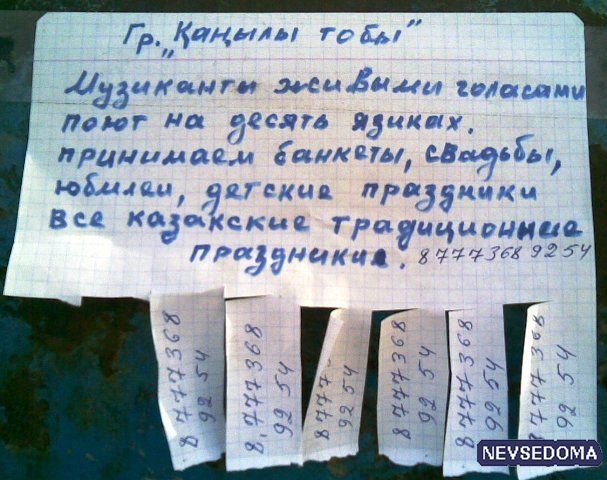 Гр. „Қаңылы тобы"
Музиканты живыми голасами
поют на десять язиках.
принимаем банкеты, свадьбы,
юбилеи, детские праздники
все казакские традиционные
праздники. 8777368 92 54
8 777 368
92 54
8.777.368
92 54
8777
92 54
8 777 368
92 54
8 777 368
92 54
8 777 368
92 54
NEVSEDOMA